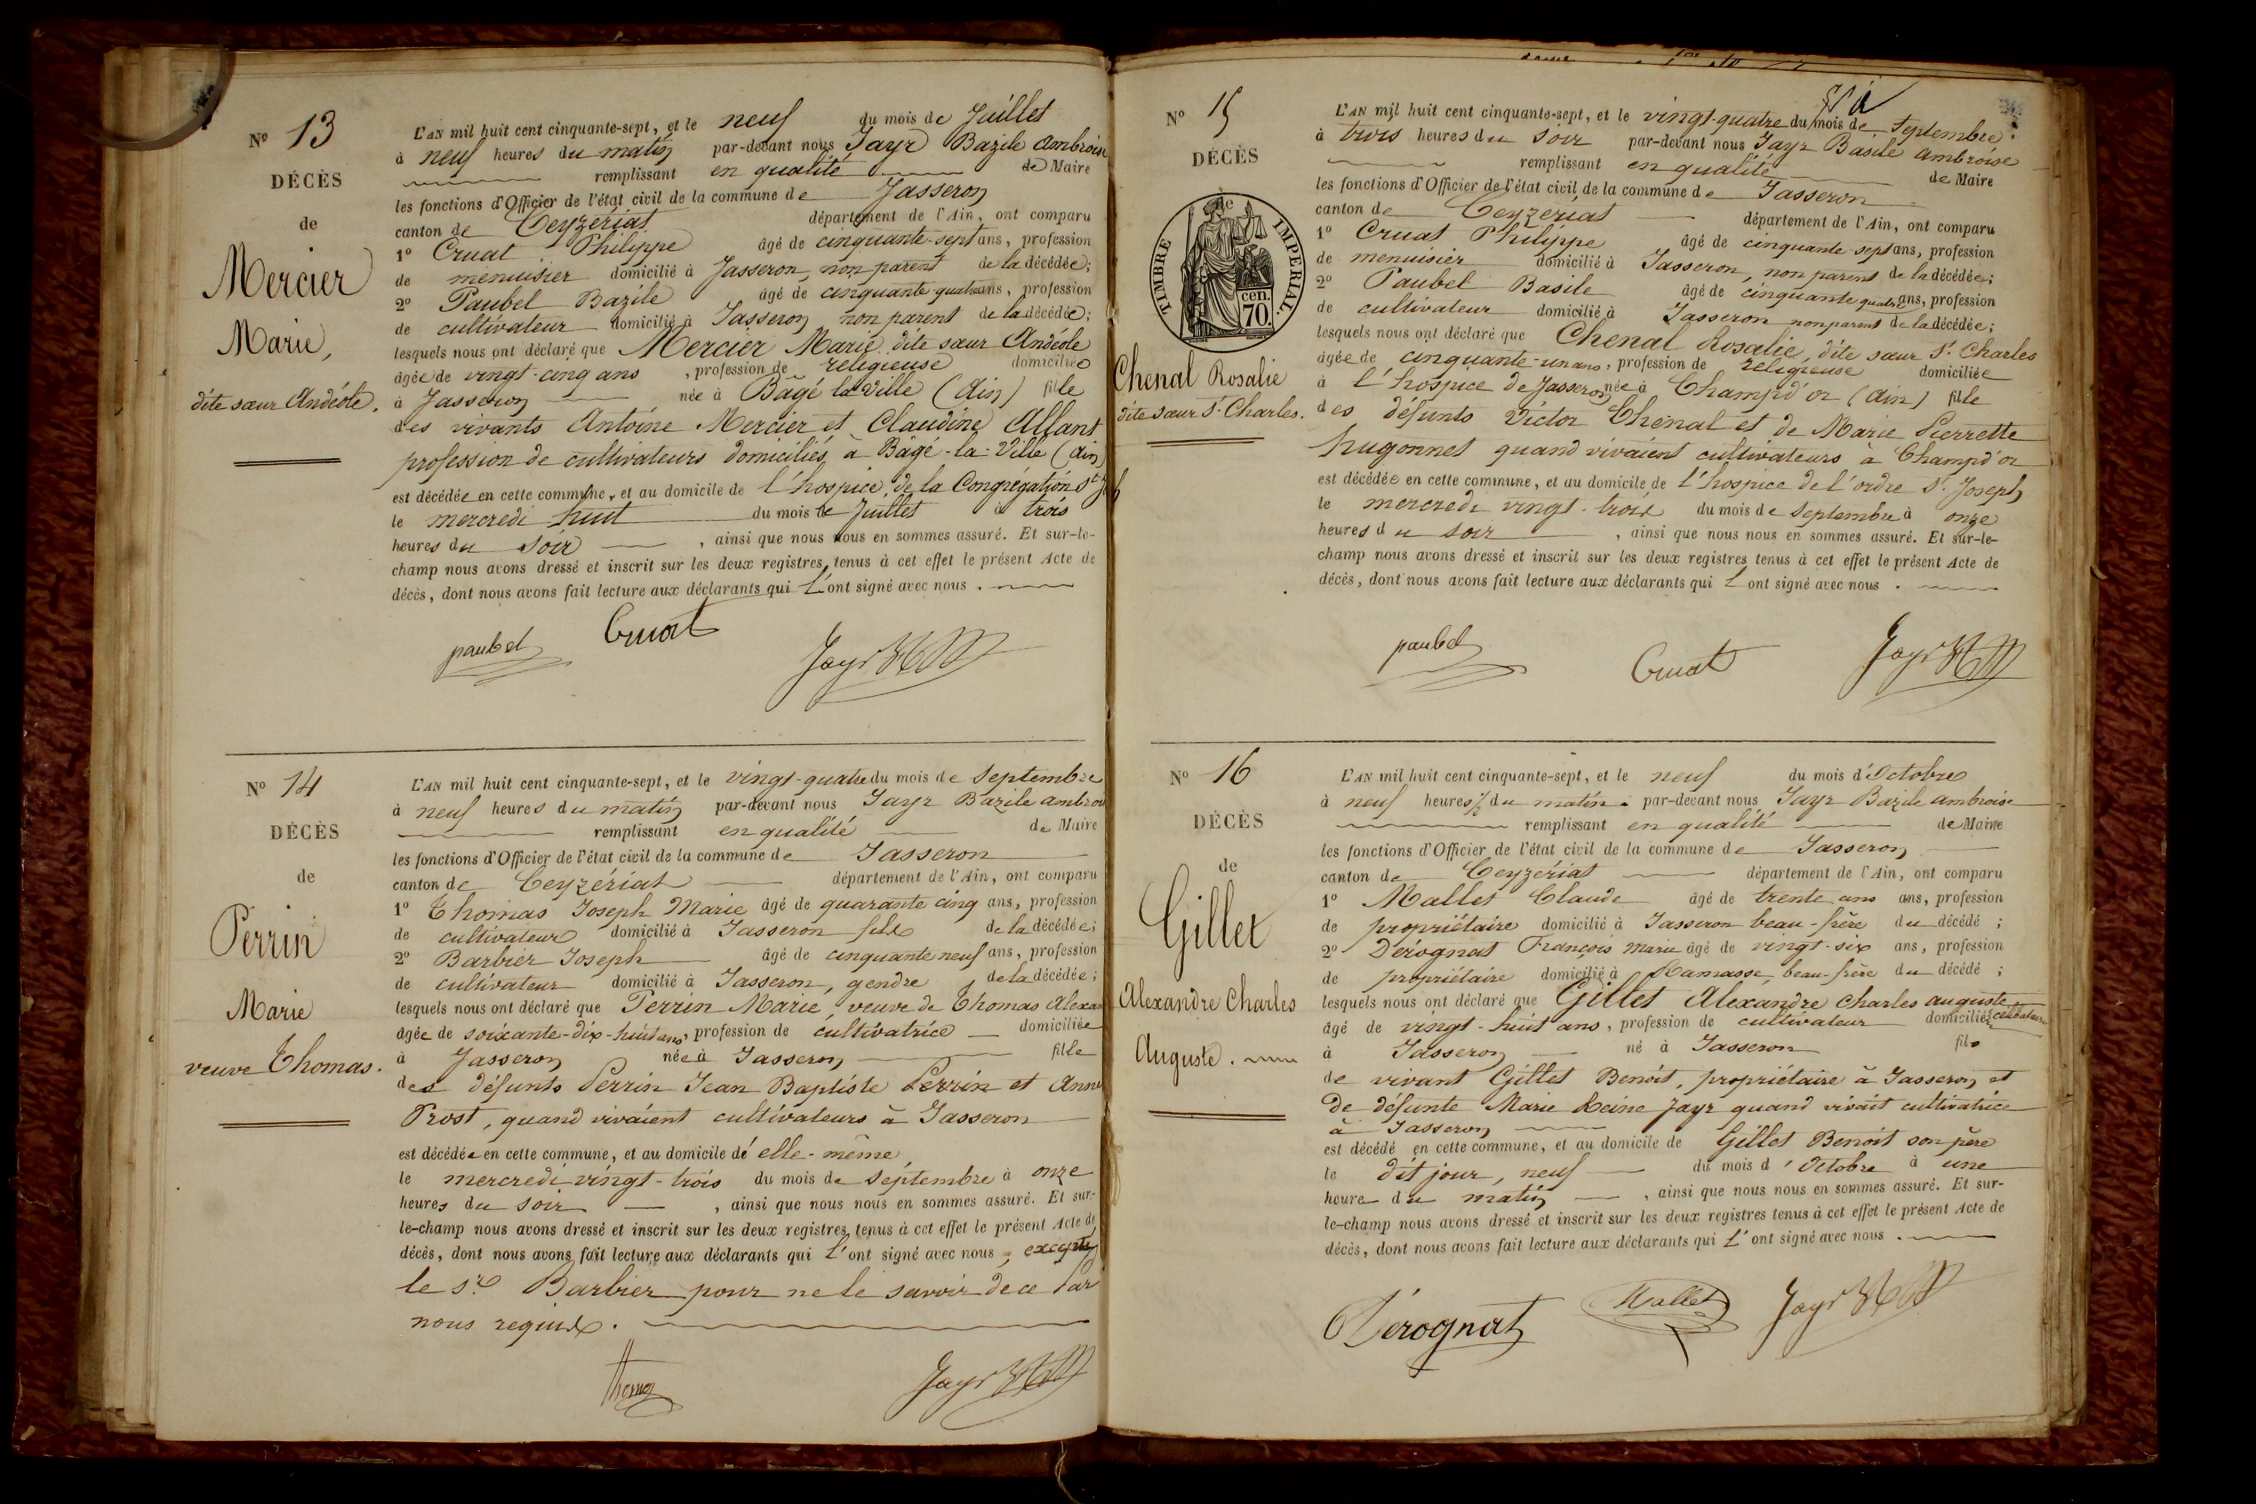 Nº 13
DÉCÈS
de
Mercier
Marie,
dite sœur Andéole.
L'AN mil huit cent cinquante-sept, et le neuf du mois de Juillet
à neuf heures du matin par-devant nous Jayr Bazile Ambroise
remplissant en qualité de Maire
les fonctions d'Officier de l'état civil de la commune de Jasseron
canton de Ceyzériat département de l'Ain, ont comparu
1º Cruat Philippe âgé de cinquante-sept ans, profession
de menuisier domicilié à Jasseron, non parent de la décédée;
2º Paubel Bazile âgé de cinquante quatre ans, profession
de cultivateur domicilié à Jasseron non parent de la décédée;
lesquels nous ont déclaré que Mercier Marie dite sœur Andéole
âgée de vingt-cinq ans, profession de religieuse domiciliée
à Jasseron née à Bâgé la Ville (Ain) fille
des vivants Antoine Mercier et Claudine Allant
profession de cultivateurs domiciliés à Bâgé-la-Ville (Ain)
est décédée en cette commune, et au domicile de l'hospice de la Congrégation St Jh
le mercredi huit du mois de Juillet à trois
heures du soir, ainsi que nous nous en sommes assuré. Et sur-le-
champ nous avons dressé et inscrit sur les deux registres tenus à cet effet le présent Acte de
décès, dont nous avons fait lecture aux déclarants qui l'ont signé avec nous.
paubel Cruat Jayr
Nº 14
DÉCÈS
de
Perrin
Marie
veuve Thomas.
L'AN mil huit cent cinquante-sept, et le vingt-quatre du mois de Septembre
à neuf heures du matin par-devant nous Jayr Bazile ambroi
remplissant en qualité de Maire
les fonctions d'Officier de l'état civil de la commune de Jasseron
canton de Ceyzériat département de l'Ain, ont comparu
1º Thomas Joseph Marie âgé de quarante cinq ans, profession
de cultivateur domicilié à Jasseron fils de la décédée;
2º Barbier Joseph âgé de cinquante neuf ans, profession
de cultivateur domicilié à Jasseron, gendre de la décédée;
lesquels nous ont déclaré que Perrin Marie, veuve de Thomas Alexan
âgée de soixante-dix-huit ans, profession de cultivatrice domiciliée
à Jasseron née à Jasseron fille
des défunts Perrin Jean Baptiste Perrin et Anne
Prost, quand vivaient cultivateurs à Jasseron
est décédée en cette commune, et au domicile d'elle-même,
le mercredi vingt-trois du mois de Septembre à onze
heures du soir, ainsi que nous nous en sommes assuré. Et sur-
le-champ nous avons dressé et inscrit sur les deux registres tenus à cet effet le présent Acte de
décès, dont nous avons fait lecture aux déclarants qui l'ont signé avec nous, excepté
le sr. Barbier pour ne le savoir de ce Par
nous requis.
Thomas Jayr
Nº 15
DÉCÈS
de
TIMBRE IMPERIAL
cen.
70
Chenal Rosalie
dite sœur St. Charles.
L'AN mil huit cent cinquante-sept, et le vingt-quatre du mois de Septembre
à trois heures du soir par-devant nous Jayr Basile ambroise
remplissant en qualité de Maire
les fonctions d'Officier de l'état civil de la commune de Jasseron
canton de Ceyzériat département de l'Ain, ont comparu
1º Cruat Philippe âgé de cinquante sept ans, profession
de menuisier domicilié à Jasseron, non parent de la décédée;
2º Paubel Basile âgé de cinquante quatre ans, profession
de cultivateur domicilié à Jasseron non parent de la décédée;
lesquels nous ont déclaré que Chenal Rosalie, dite sœur St. Charles
âgée de cinquante-un ans, profession de religieuse domiciliée
à l'hospice de Jasseron née à Champd'or (Ain) fille
des défunts Victor Chenal et de Marie Pierrette
hugonnet quand vivaient cultivateurs à Champd'or
est décédée en cette commune, et au domicile de l'hospice de l'ordre St. Joseph
le mercredi vingt-trois du mois de Septembre à onze
heures du soir, ainsi que nous nous en sommes assuré. Et sur-le-
champ nous avons dressé et inscrit sur les deux registres tenus à cet effet le présent Acte de
décès, dont nous avons fait lecture aux déclarants qui l'ont signé avec nous.
paubel Cruat Jayr
Nº 16
DÉCÈS
de
Gillet
Alexandre Charles
Auguste.
L'AN mil huit cent cinquante-sept, et le neuf du mois d'Octobre
à neuf heures 1/2 du matin par-devant nous Jayr Bazile ambroise
remplissant en qualité de Maire
les fonctions d'Officier de l'état civil de la commune de Jasseron
canton de Ceyzériat département de l'Ain, ont comparu
1º Mallet Claude âgé de trente ans ans, profession
de propriétaire domicilié à Jasseron beau-frère du décédé;
2º Dérognat François Marie âgé de vingt-six ans, profession
de propriétaire domicilié à Ramasse, beau-frère du décédé;
lesquels nous ont déclaré que Gillet Alexandre Charles auguste
âgé de vingt-huit ans, profession de cultivateur domicilié célibataire
à Jasseron né à Jasseron fils
de vivant Gillet Benoit, propriétaire à Jasseron et
de défunte Marie Reine Jayr quand vivait cultivatrice
à Jasseron
est décédé en cette commune, et au domicile de Gillet Benoit son père
le dit jour, neuf du mois d'Octobre à une
heure du matin, ainsi que nous nous en sommes assuré. Et sur-
le-champ nous avons dressé et inscrit sur les deux registres tenus à cet effet le présent Acte de
décès, dont nous avons fait lecture aux déclarants qui l'ont signé avec nous.
Dérognat Mallet Jayr